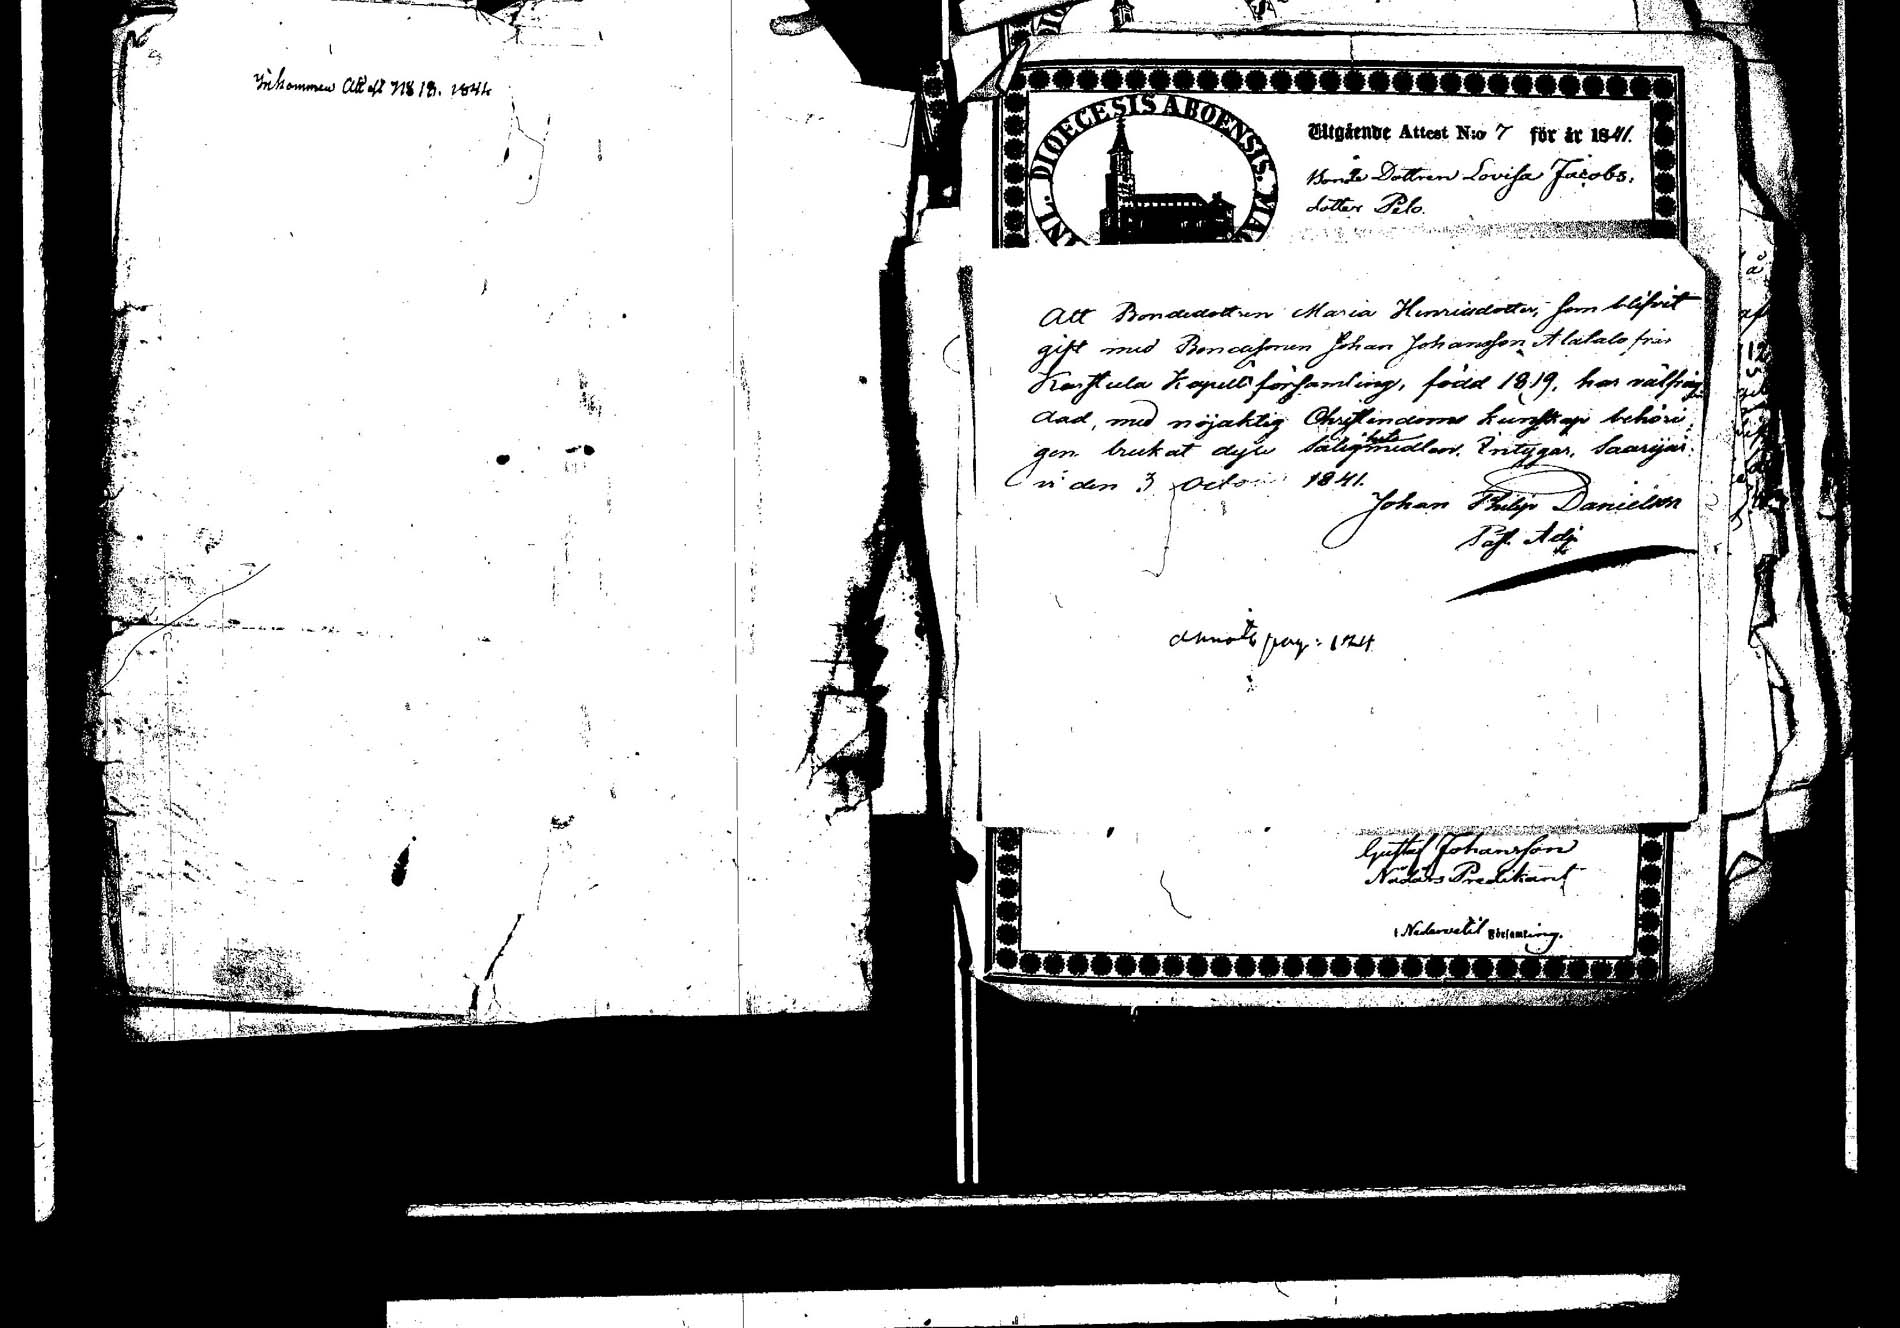 Inkommen Attest N:o 13. 1844
SIGIL. DIOECESIS ABOENSIS. MAG
Utgående Attest N:o 7 för år 1841.
Bonde Dottren Lovisa Jacobs.
dotter Pelo.
Att Bondedottren Maria Henricsdotter, som blifvit
gift med Bondesonen Johan Johansson Alalalo från
Karstula Kapellförsamling, född 1819, har välfräg
dad, med nöjaktig Christendoms kunskap behöri
gen brukat dyre Salighetsmedlen, Intygar, Saarijär
vi den 3 Octo 1841.
Johan Philip Danielson
Past. Adj.
Annot: pag: 124
Gustaf Johansson
Nådårs Predikant
i Nedervetil Församling.